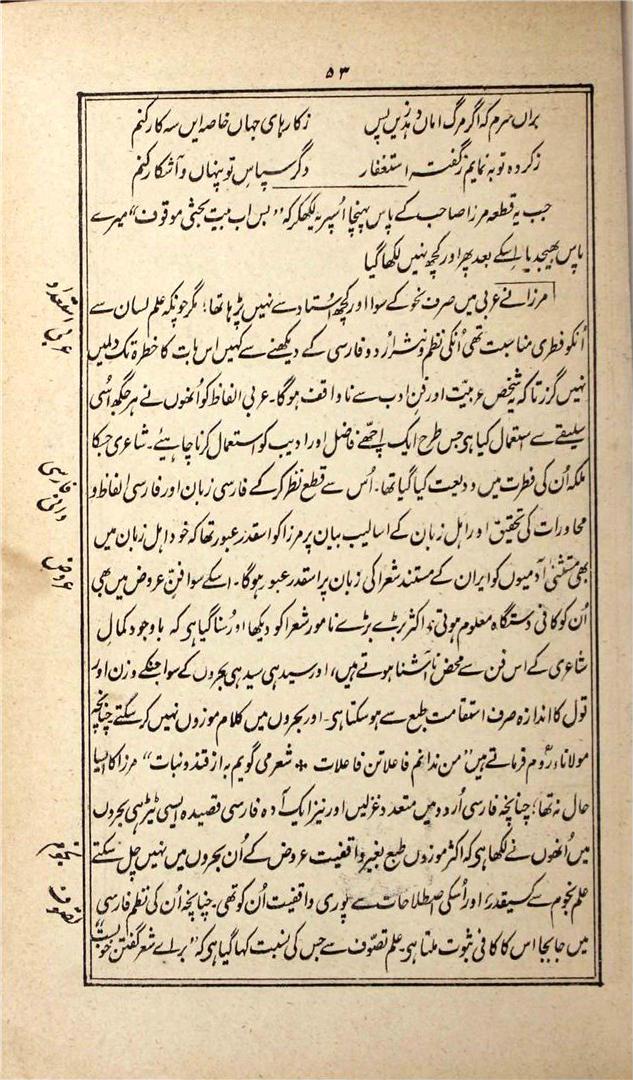 ۵۳
براں سرم کہ اگر مرگ اماں دہد زیں پس
زکارہای جہاں خاصہ ایں سہ کار کنم
زکردہ توبہ نمایم زگفتہ استغفار
وگر سپاس تو پنہاں و آشکار کنم
جب یہ قطعہ مرزا صاحب کے پاس پہنچا اُسپر یہ لکھکر کہ "بس اب بیت بحثی موقوف" میرے
پاس بھیجدیا۔ اِسکے بعد پھر اور کچھ نہیں لکھا گیا
مرزا نے عربی میں صرف نحو کے سوا اور کچھ اُستاد سے نہیں پڑہا تھا؛ مگر چونکہ علم لسان سے
اُنکو فطری مناسبت تھی اُنکی نظم و نثر اُردو فارسی کے دیکھنے سے کہیں اس بات کا خطرہ تک دلمیں
نہیں گزرتا کہ یہ شخص عربیّت اور فن ادب سے ناواقف ہوگا۔ عربی الفاظ کو اُنھوں نے ہر جگہ اُسی
سلیقے سے استعمال کیا ہی جس طرح ایک اچھے فاضل اور ادیب کو استعمال کرنا چاہیئے۔ شاعری جسکا
ملکہ اُن کی فطرت میں ودیعت کیا گیا تھا۔ اُس سے قطع نظر کرکے فارسی زبان اور فارسی الفاظ و
محاورات کی تحقیق اور اہل زبان کے اسالیب بیان پر مرزا کو اسقدر عبور تھا کہ خود اہل زبان میں
بھی مستثنیٰ آدمیوں کو ایران کے مستند شعرا کی زبان پر اسقدر عبور ہوگا۔ اسکے سوا فنّ عروض میں بھی
اُن کو کافی دستگاہ معلوم ہوتی، اکثر بڑے بڑے نامور شعرا کو دیکھا اور سُنا گیا ہی کہ باوجود کمالِ
شاعری کے اس فن سے محض ناآشنا ہوتے ہیں، اور سیدہی سیدہی بحروں کے سوا جنکے وزن اور
قول کا اندازہ صرف استقامت طبع سے ہوسکتا ہی۔ اور بحروں میں کلام موزوں نہیں کرسکتے چنانچہ
مولاناء روم فرماتے ہیں "من ندانم فاعلاتن فاعلات * شعر می گویم بہ از قند و نبات" مرزا کا ایسا
حال نہ تھا؛ چنانچہ فارسی اُردو میں متعدد غزلیں اور نیز ایک آدہ فارسی قصیدہ ایسی ٹیڑہی بحروں
میں اُنھوں نے لکھا ہی کہ اکثر موزوں طبع بغیر واقفیت عروض کے اُن بحروں میں نہیں چل سکتے
علم نجوم سے کسیقدر، اور اُسکی اصطلاحات سے پوری واقفیت اُن کو تھی۔ چنانچہ اُن کی نظم فارسی
میں جابجا اس کا کافی ثبوت ملتا ہی۔ علم تصوّف سے جس کی نسبت کہا گیا ہی کہ "براے شعر گفتن خوبست"
عربی استعداد
فارسی دانی
عروض
نجوم
تصوف